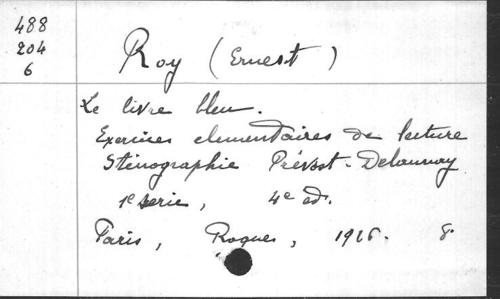 488
204
6
Roy (Ernest)
Le livre bleu.
Exercices elementaires de lecture
Sténographie Prévost-Delaunay
1e serie, 4e ed.
Paris, Roques, 1916. 8.